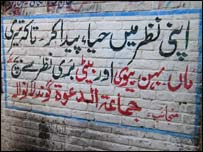 اپنی نظر میں حیا، پیدا کر۔ تاکہ تیری
ماں بہن بیوی اور بیٹی بری نظر سے بچے
جماعۃ الدعوۃ گوندلانوالہ